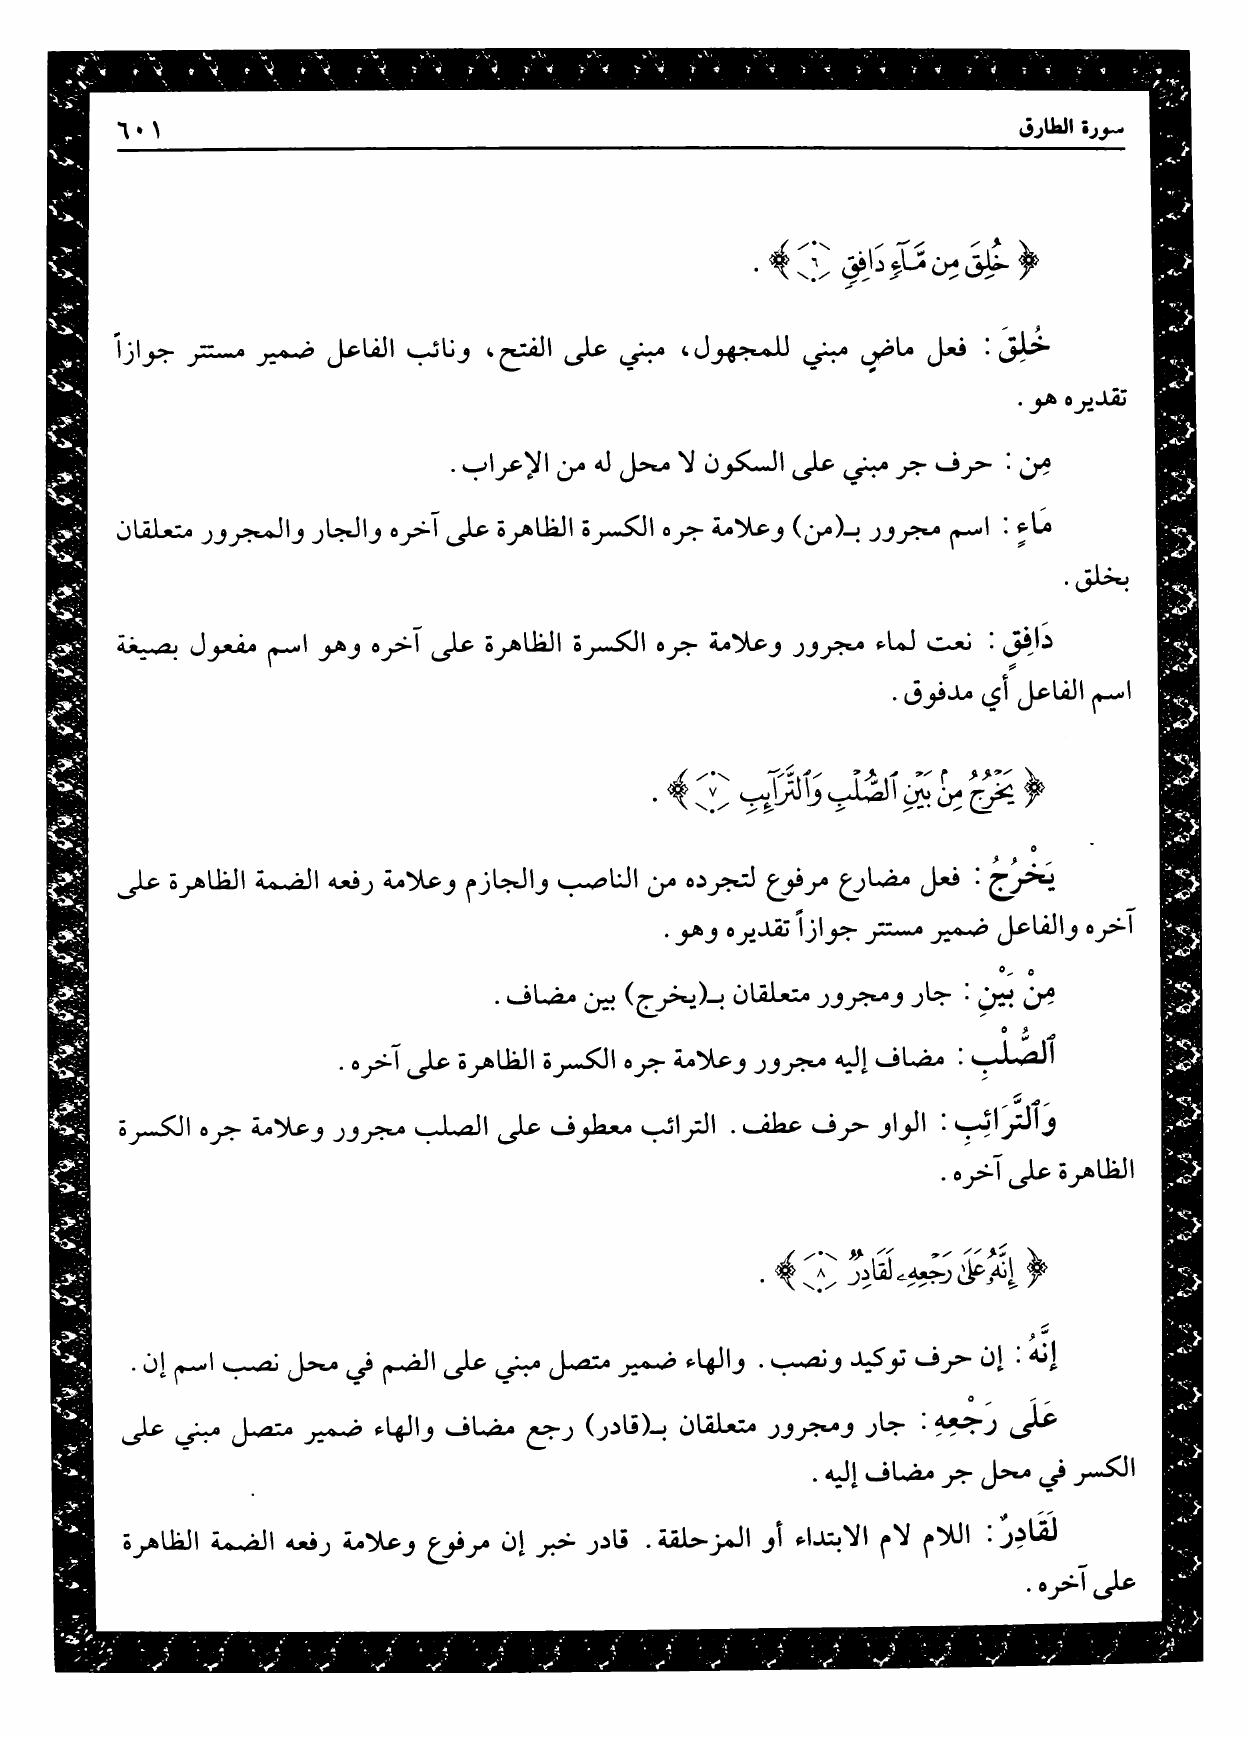 سورة الطارق
٦٠١
﴿ خُلِقَ مِن مَّآءٖ دَافِقٖ ٦ ﴾ .
خُلِقَ : فعل ماضٍ مبني للمجهول، مبني على الفتح، ونائب الفاعل ضمير مستتر جوازاً
تقديره هو .
مِن : حرف جر مبني على السكون لا محل له من الإعراب .
مَاءٍ : اسم مجرور بـ(من) وعلامة جره الكسرة الظاهرة على آخره والجار والمجرور متعلقان
بخلق .
دَافِقٍ : نعت لماء مجرور وعلامة جره الكسرة الظاهرة على آخره وهو اسم مفعول بصيغة
اسم الفاعل أي مدفوق .
﴿ يَخۡرُجُ مِنۢ بَيۡنِ ٱلصُّلۡبِ وَٱلتَّرَآئِبِ ٧ ﴾ .
يَخْرُجُ : فعل مضارع مرفوع لتجرده من الناصب والجازم وعلامة رفعه الضمة الظاهرة على
آخره والفاعل ضمير مستتر جوازاً تقديره وهو .
مِنْ بَيْنِ : جار ومجرور متعلقان بـ(يخرج) بين مضاف .
ٱلصُّلْبِ : مضاف إليه مجرور وعلامة جره الكسرة الظاهرة على آخره .
وَٱلتَّرَائِبِ : الواو حرف عطف . الترائب معطوف على الصلب مجرور وعلامة جره الكسرة
الظاهرة على آخره .
﴿ إِنَّهُۥ عَلَىٰ رَجۡعِهِۦ لَقَادِرٞ ٨ ﴾ .
إِنَّهُ : إن حرف توكيد ونصب . والهاء ضمير متصل مبني على الضم في محل نصب اسم إن .
عَلَى رَجْعِهِ : جار ومجرور متعلقان بـ(قادر) رجع مضاف والهاء ضمير متصل مبني على
الكسر في محل جر مضاف إليه .
لَقَادِرٌ : اللام لام الابتداء أو المزحلقة . قادر خبر إن مرفوع وعلامة رفعه الضمة الظاهرة
على آخره .